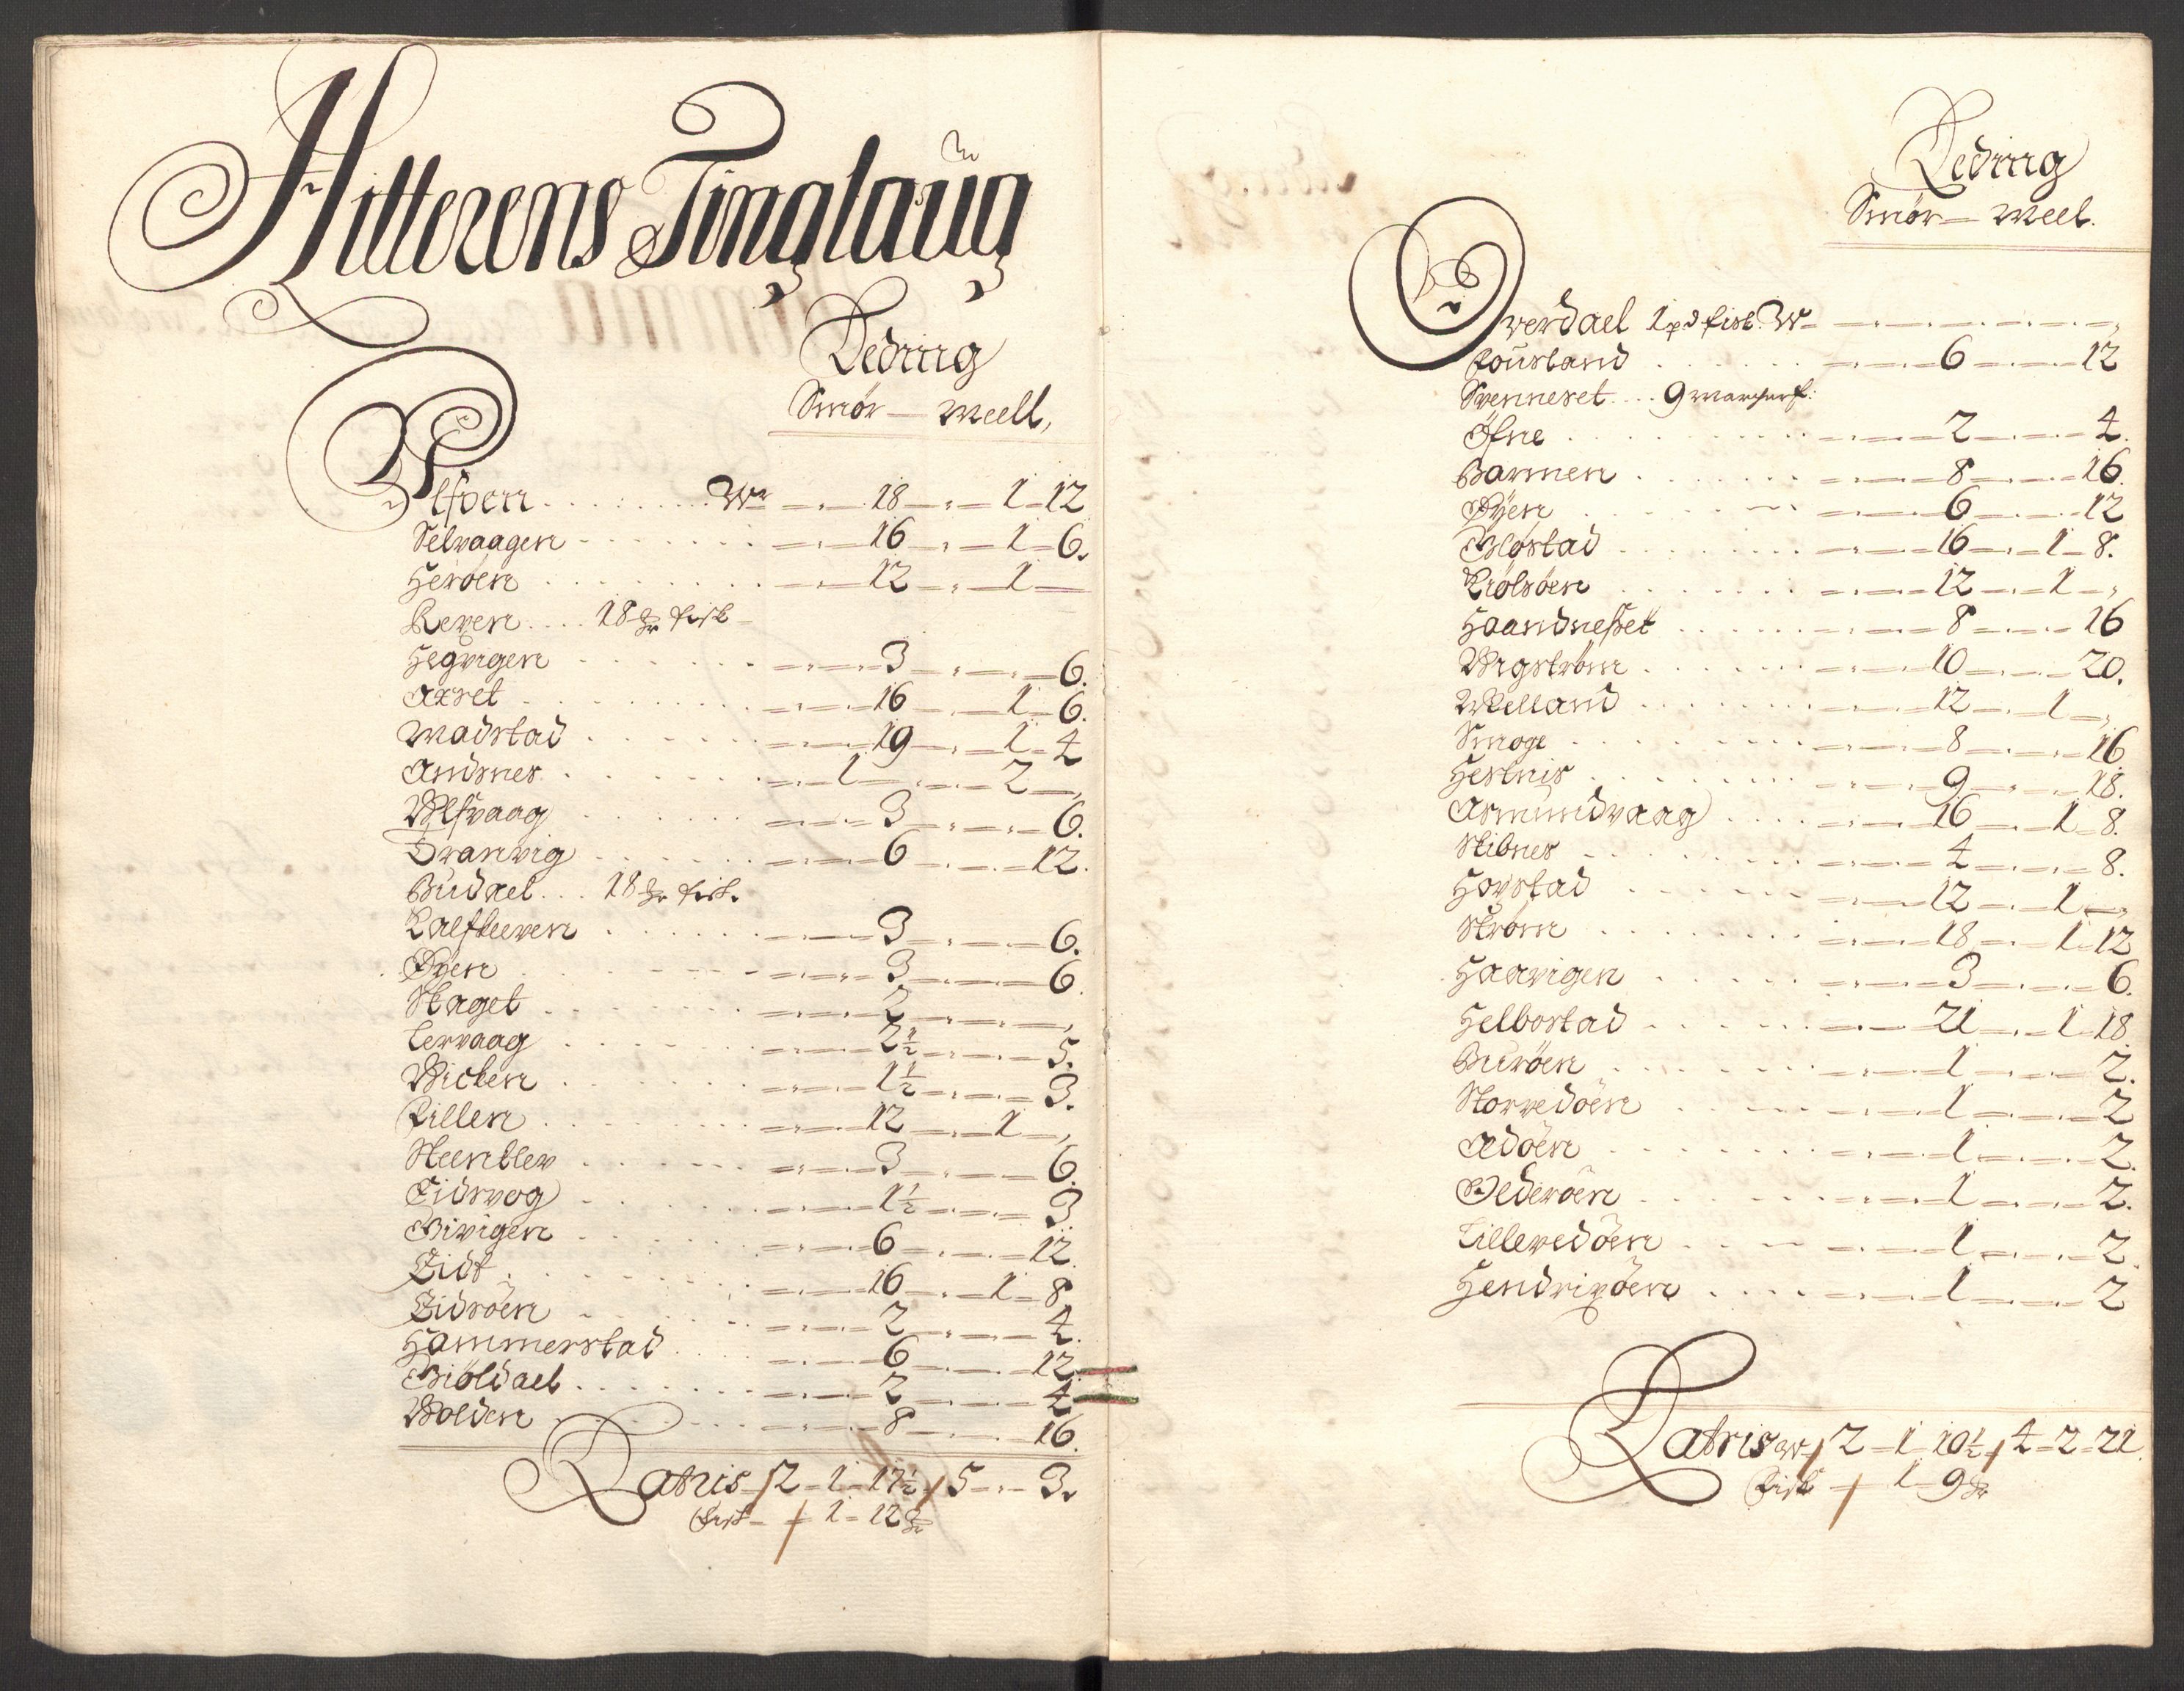 Hitterens Tinglaug
Leding
Smør – Meell,
Ulføen . . . . W: 18 – 1 – 12
Selvaagen 16 – 1 – 6.
Herøen 12 – 1 –
Reven .... 18 fisk –
Hegvigen 3 – 6.
Axset 16 – 1 – 6.
Madstad 19 – 1 – 4
Andsnes 1 – 2 –
Ulfvaag 3 – 6.
Tranvig 6 – 12.
Budael ... 18 fisk.
Kalfkleeven 3 – 6.
Øyen 3 – 6.
Skaget 2 – ,
Lervaag 2½ – 5.
Wicken 1½ – 3.
Fillen 12 – 1 – ,
Steenklev 3 – 6.
Eidsvog 1½ – 3.
Givigen 6 – 12.
Eidt 16 – 1 – 8
Eidsøen 2 – 4.
Hammerstad 6 – 12.
Giøldael 2 – 4
Wolden 8 – 16.
Lateris / 2 – 1 – 17½ / 5 – „ – 3.
Fisk – / 1 – 12
Leding
Smør – Meel.
Overdael 1 pd fisk W –
Fousland 6 – 12
Svenneset ... 9 march f:
Øfne 2 – 4.
Barmen 8 – 16.
Øyen 6 – 12
Gløstad 16 – 1 – 8.
Kiølsøen 12 – 1 – ,
Haandnesset 8 – 16
Wigstrøm 10 – 20.
Melland 12 – 1 – ,
Smoge 8 – 16
Hestnis 9 – 18.
Asmundvaag 16 – 1 – 8.
Stibnes 4 – 8.
Hovstad 12 – 1 – ,
Strøm 18 – 1 – 12
Haavigen 3 – 6.
Helbostad 21 – 1 – 18.
Burøen 1 – 2.
Storvedøen 1 – 2
Adøen 1 – 2.
Olderøen 1 – 2.
Lillevedøen 1 – 2.
Hendrixøen 1 – 2
Lateris W / 2 – 1 – 10½ / 4 – 2 – 21.
Fisk – / 1 – 9